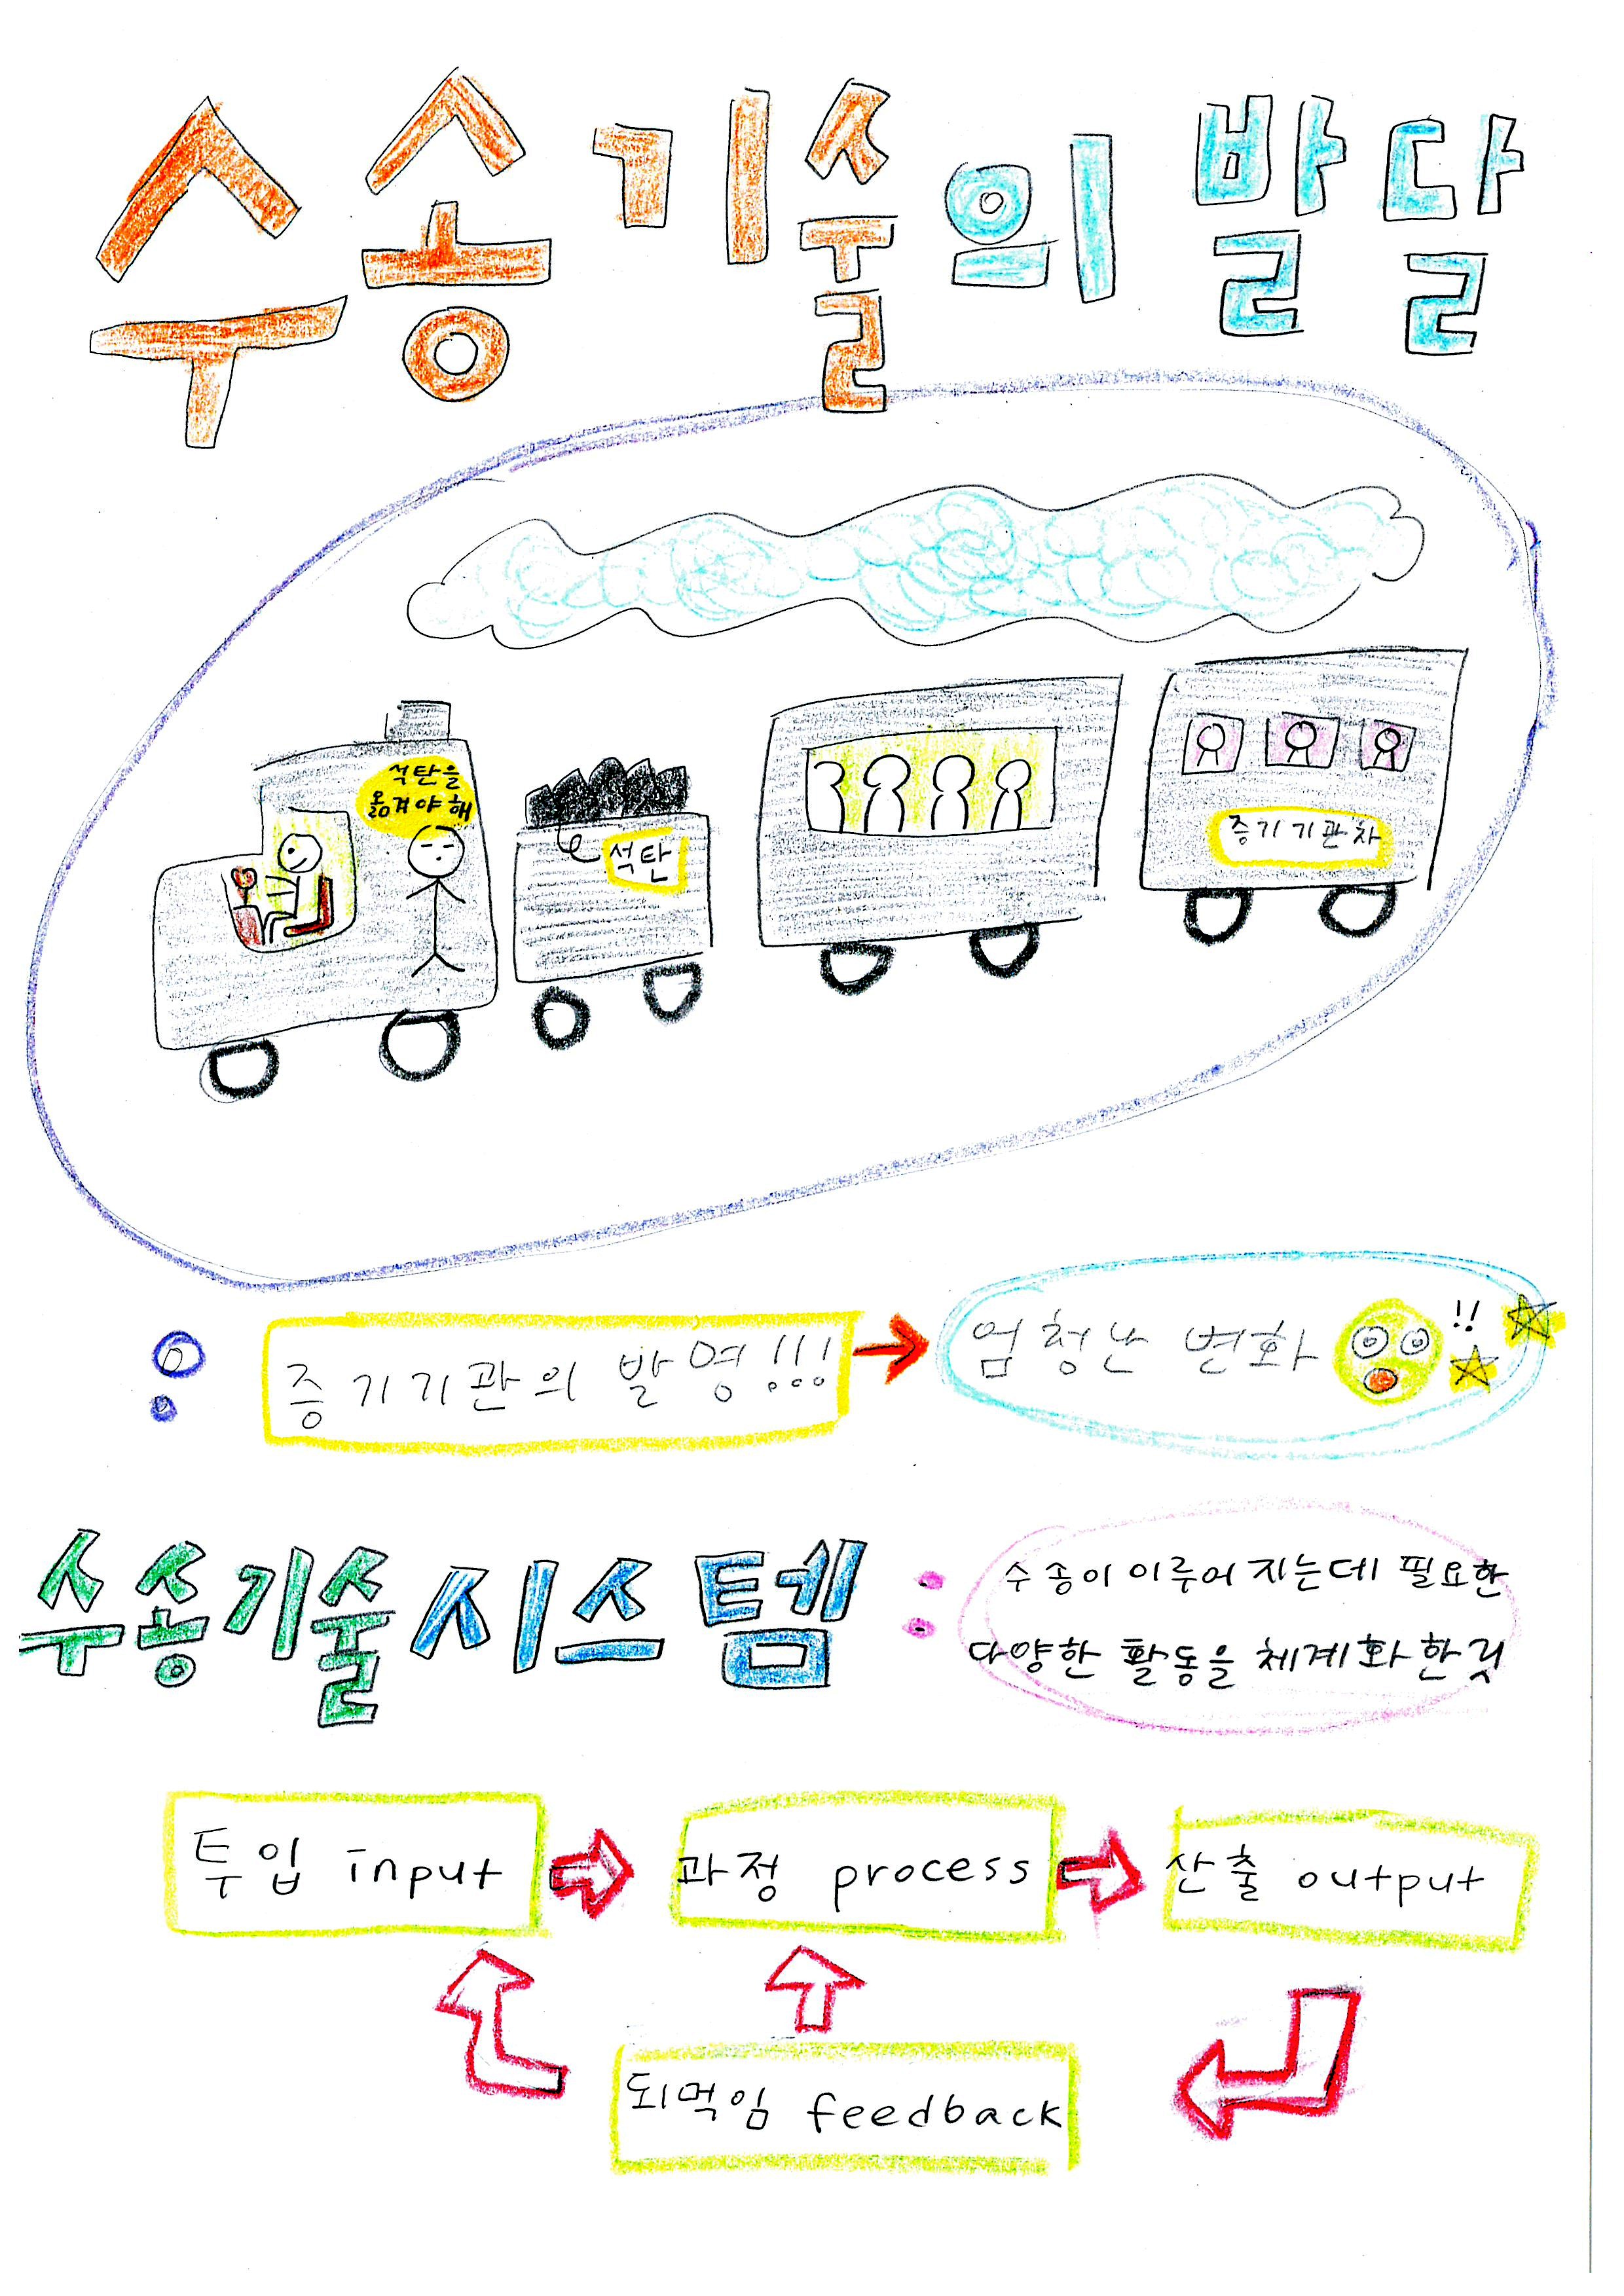 수송기술의 발달
석탄을
옮겨야 해
석탄
증기기관차
: 증기기관의 발명!!! → 엄청난 변화 !!
수송기술시스템 : 수송이 이루어 지는데 필요한
다양한 활동을 체계화 한 것
투입 input
과정 process
산출 output
되먹임 feedback